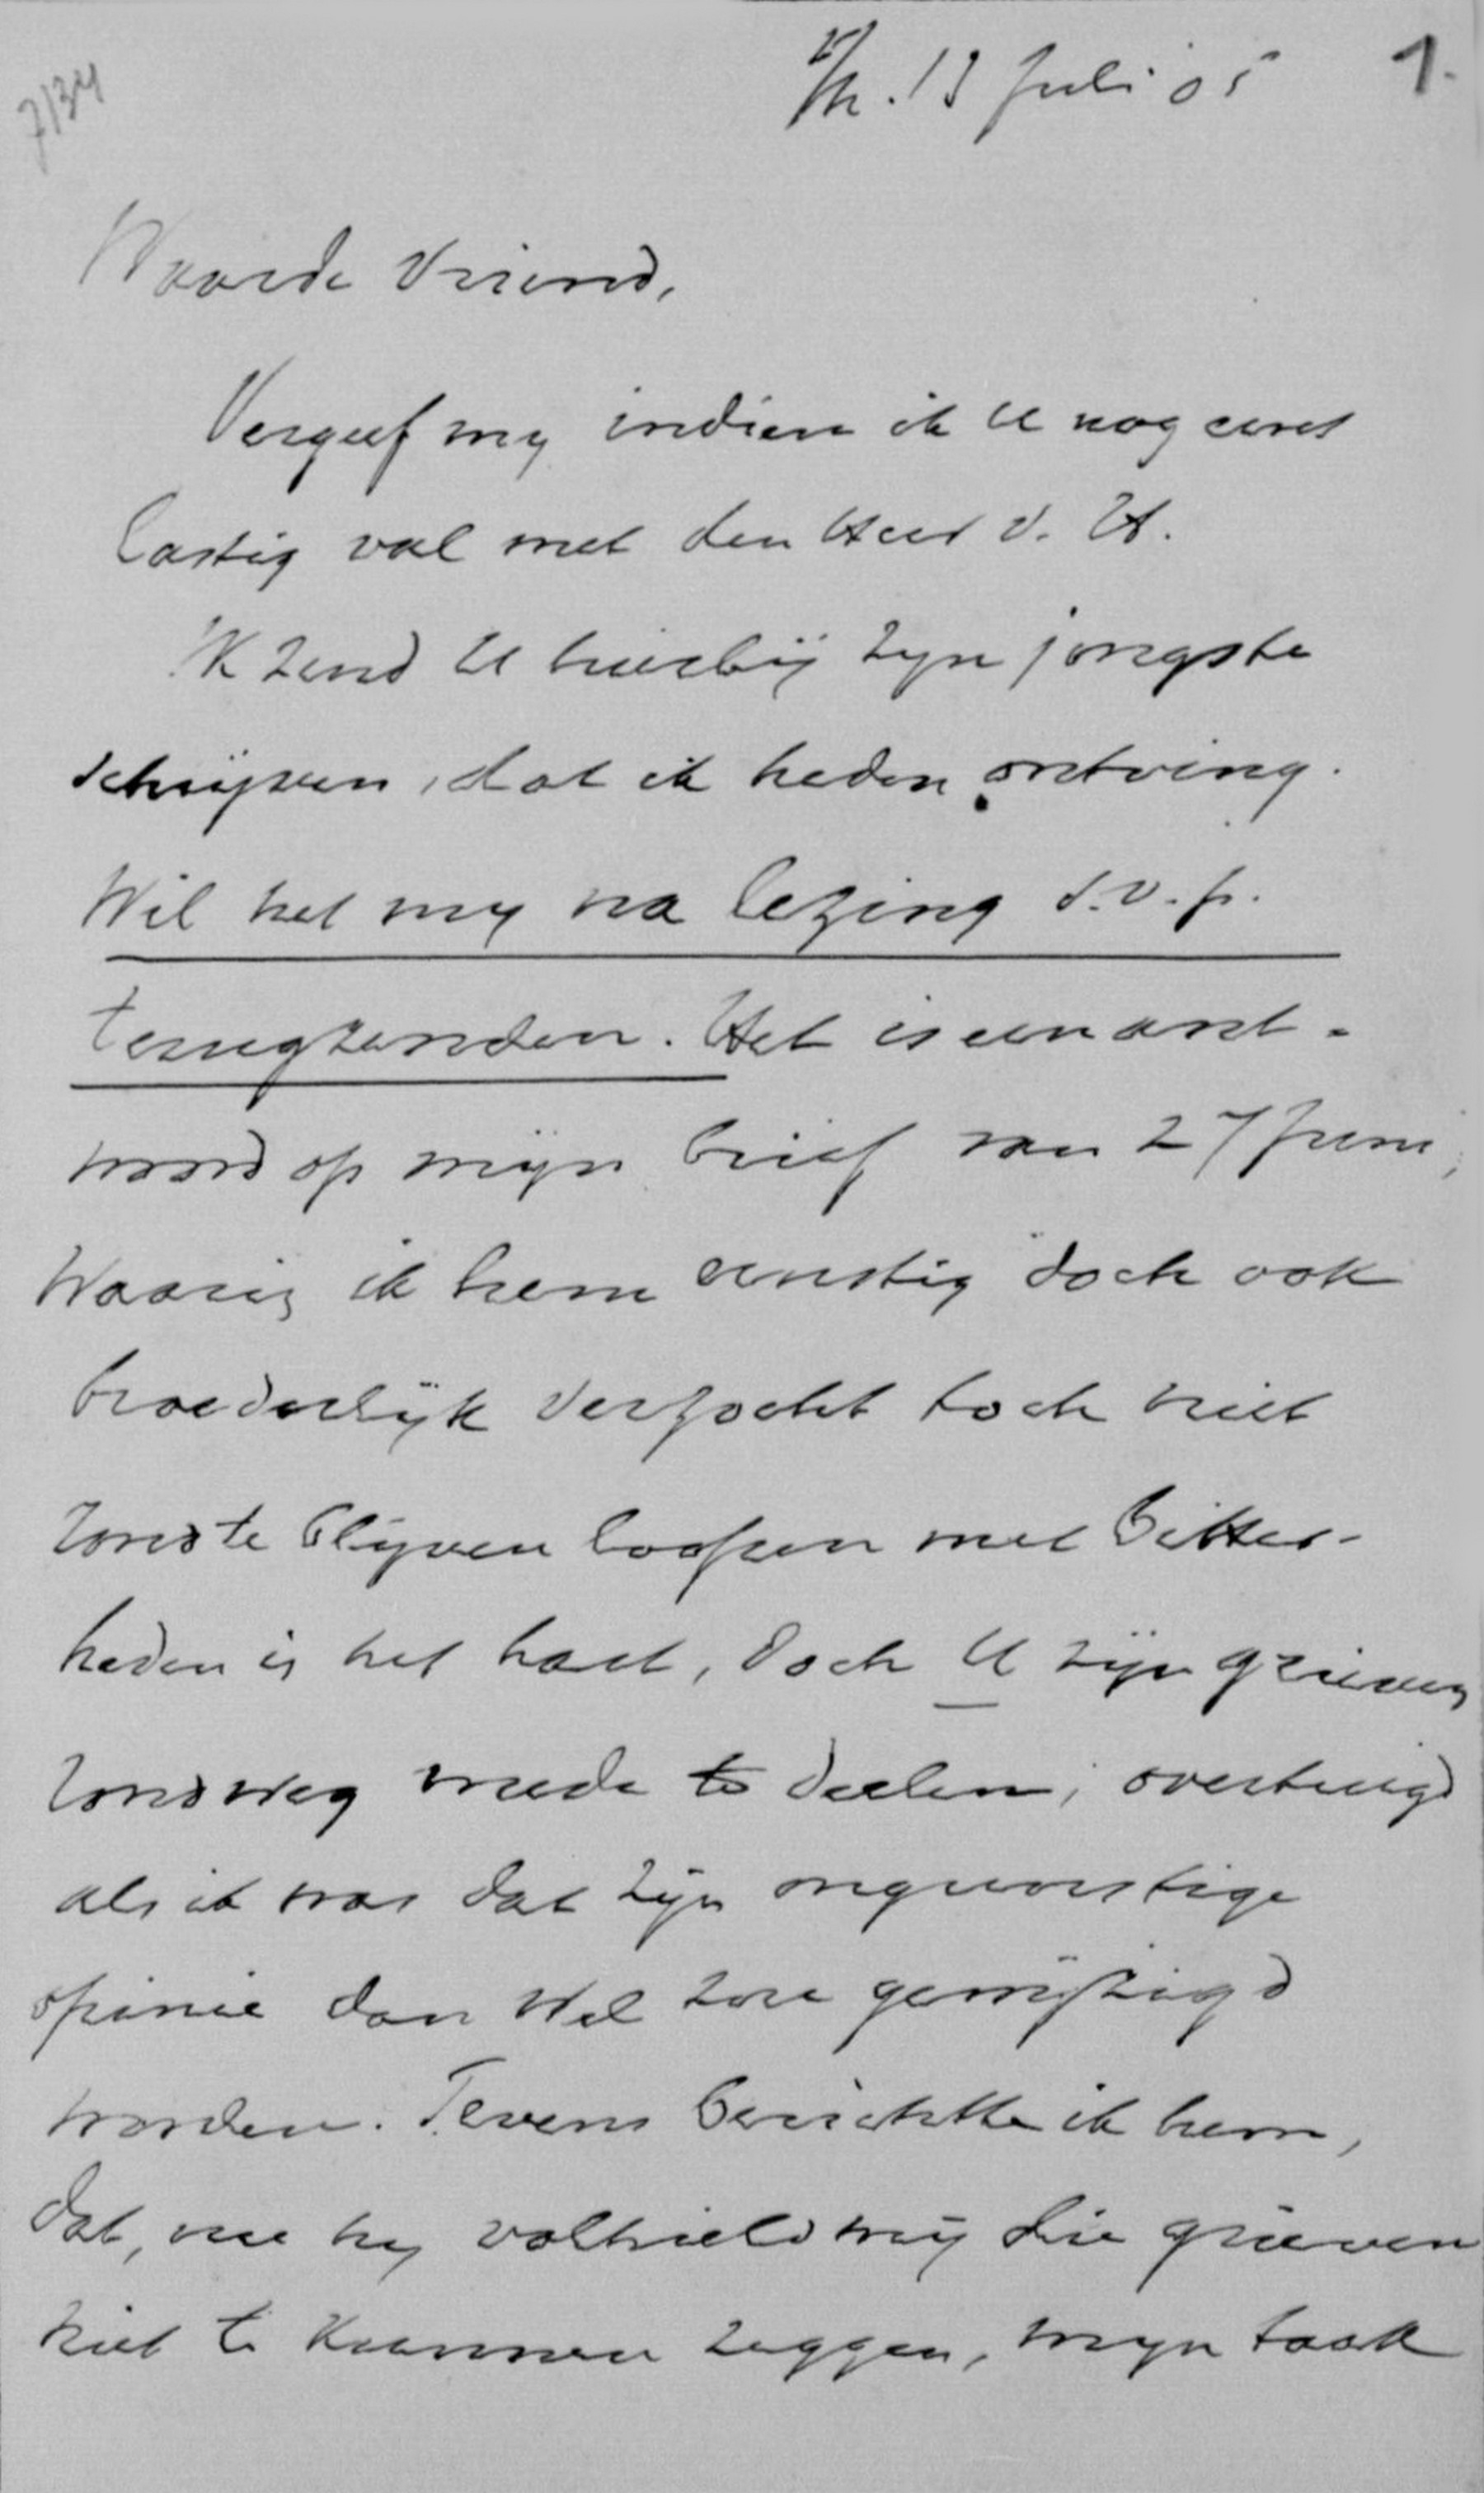 7134
13 Juli 05
1.
Waarde Vriend,
Vergeef my indien ik U nog eens
lastig val met den Heer v. H.
Ik zend U hierbij zyn jongste
schrijven, dat ik heden ontving.
Wil het my na lezing s.v.p.
terugzenden. Het is een ant-
woord op mijn brief van 27 Juni,
waarin ik hem ernstig doch ook
broederlijk verzocht toch niet
rond te blijven loopen met bitter-
heden in het hart, doch U zijn grieven
rondweg mede te deelen; overtuigd
als ik was dat zijn ongunstige
opinie dan wel zou gewijzigd
worden. Tevens berichtte ik hem,
dat, nu hy volhield mij die grieven
niet te kunnen zeggen, myn taak